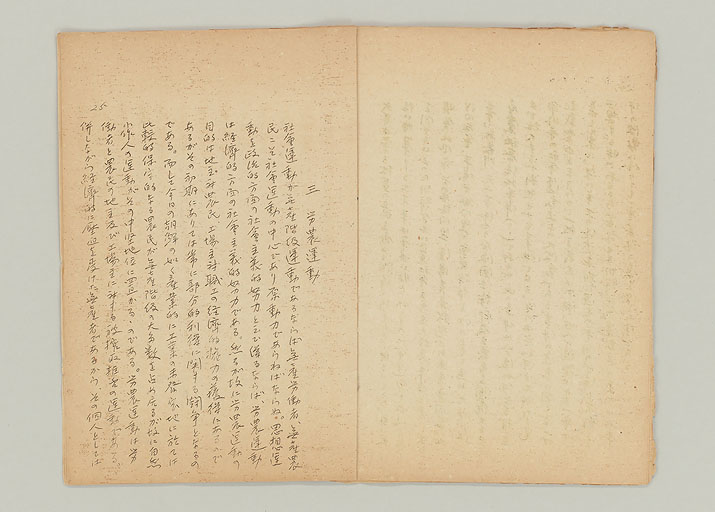 三　労農運動
社会運動が無産階級運動であるならば無産労働者、無産農
民こそ社会運動の中心であり原動力であらねばならぬ。思想運
動を政治的方面の社会主義的努力とまで言ひ得るならば、労農運動
は経済的方面の社会主義的努力である。然るが故に労農運動の
目的は地主対農民、工場主対職工の経済的権力の獲得にあるので
あるがその初期にありては常に部分的利得に関する闘争となるの
である。而して今日の朝鮮の如く産業的に工業の未発家地に於ては
比較的保守的なる農民が無産階級の大多数を占め居るが故に自然
小作人の運動がその中堅地位に置かるゝのである。労農運動は労
働者と農民の地主及び工場主に対する被搾取雑者の運動である。
併しながら経済的に圧迫を受けた無産者であるから、その個人としては
25